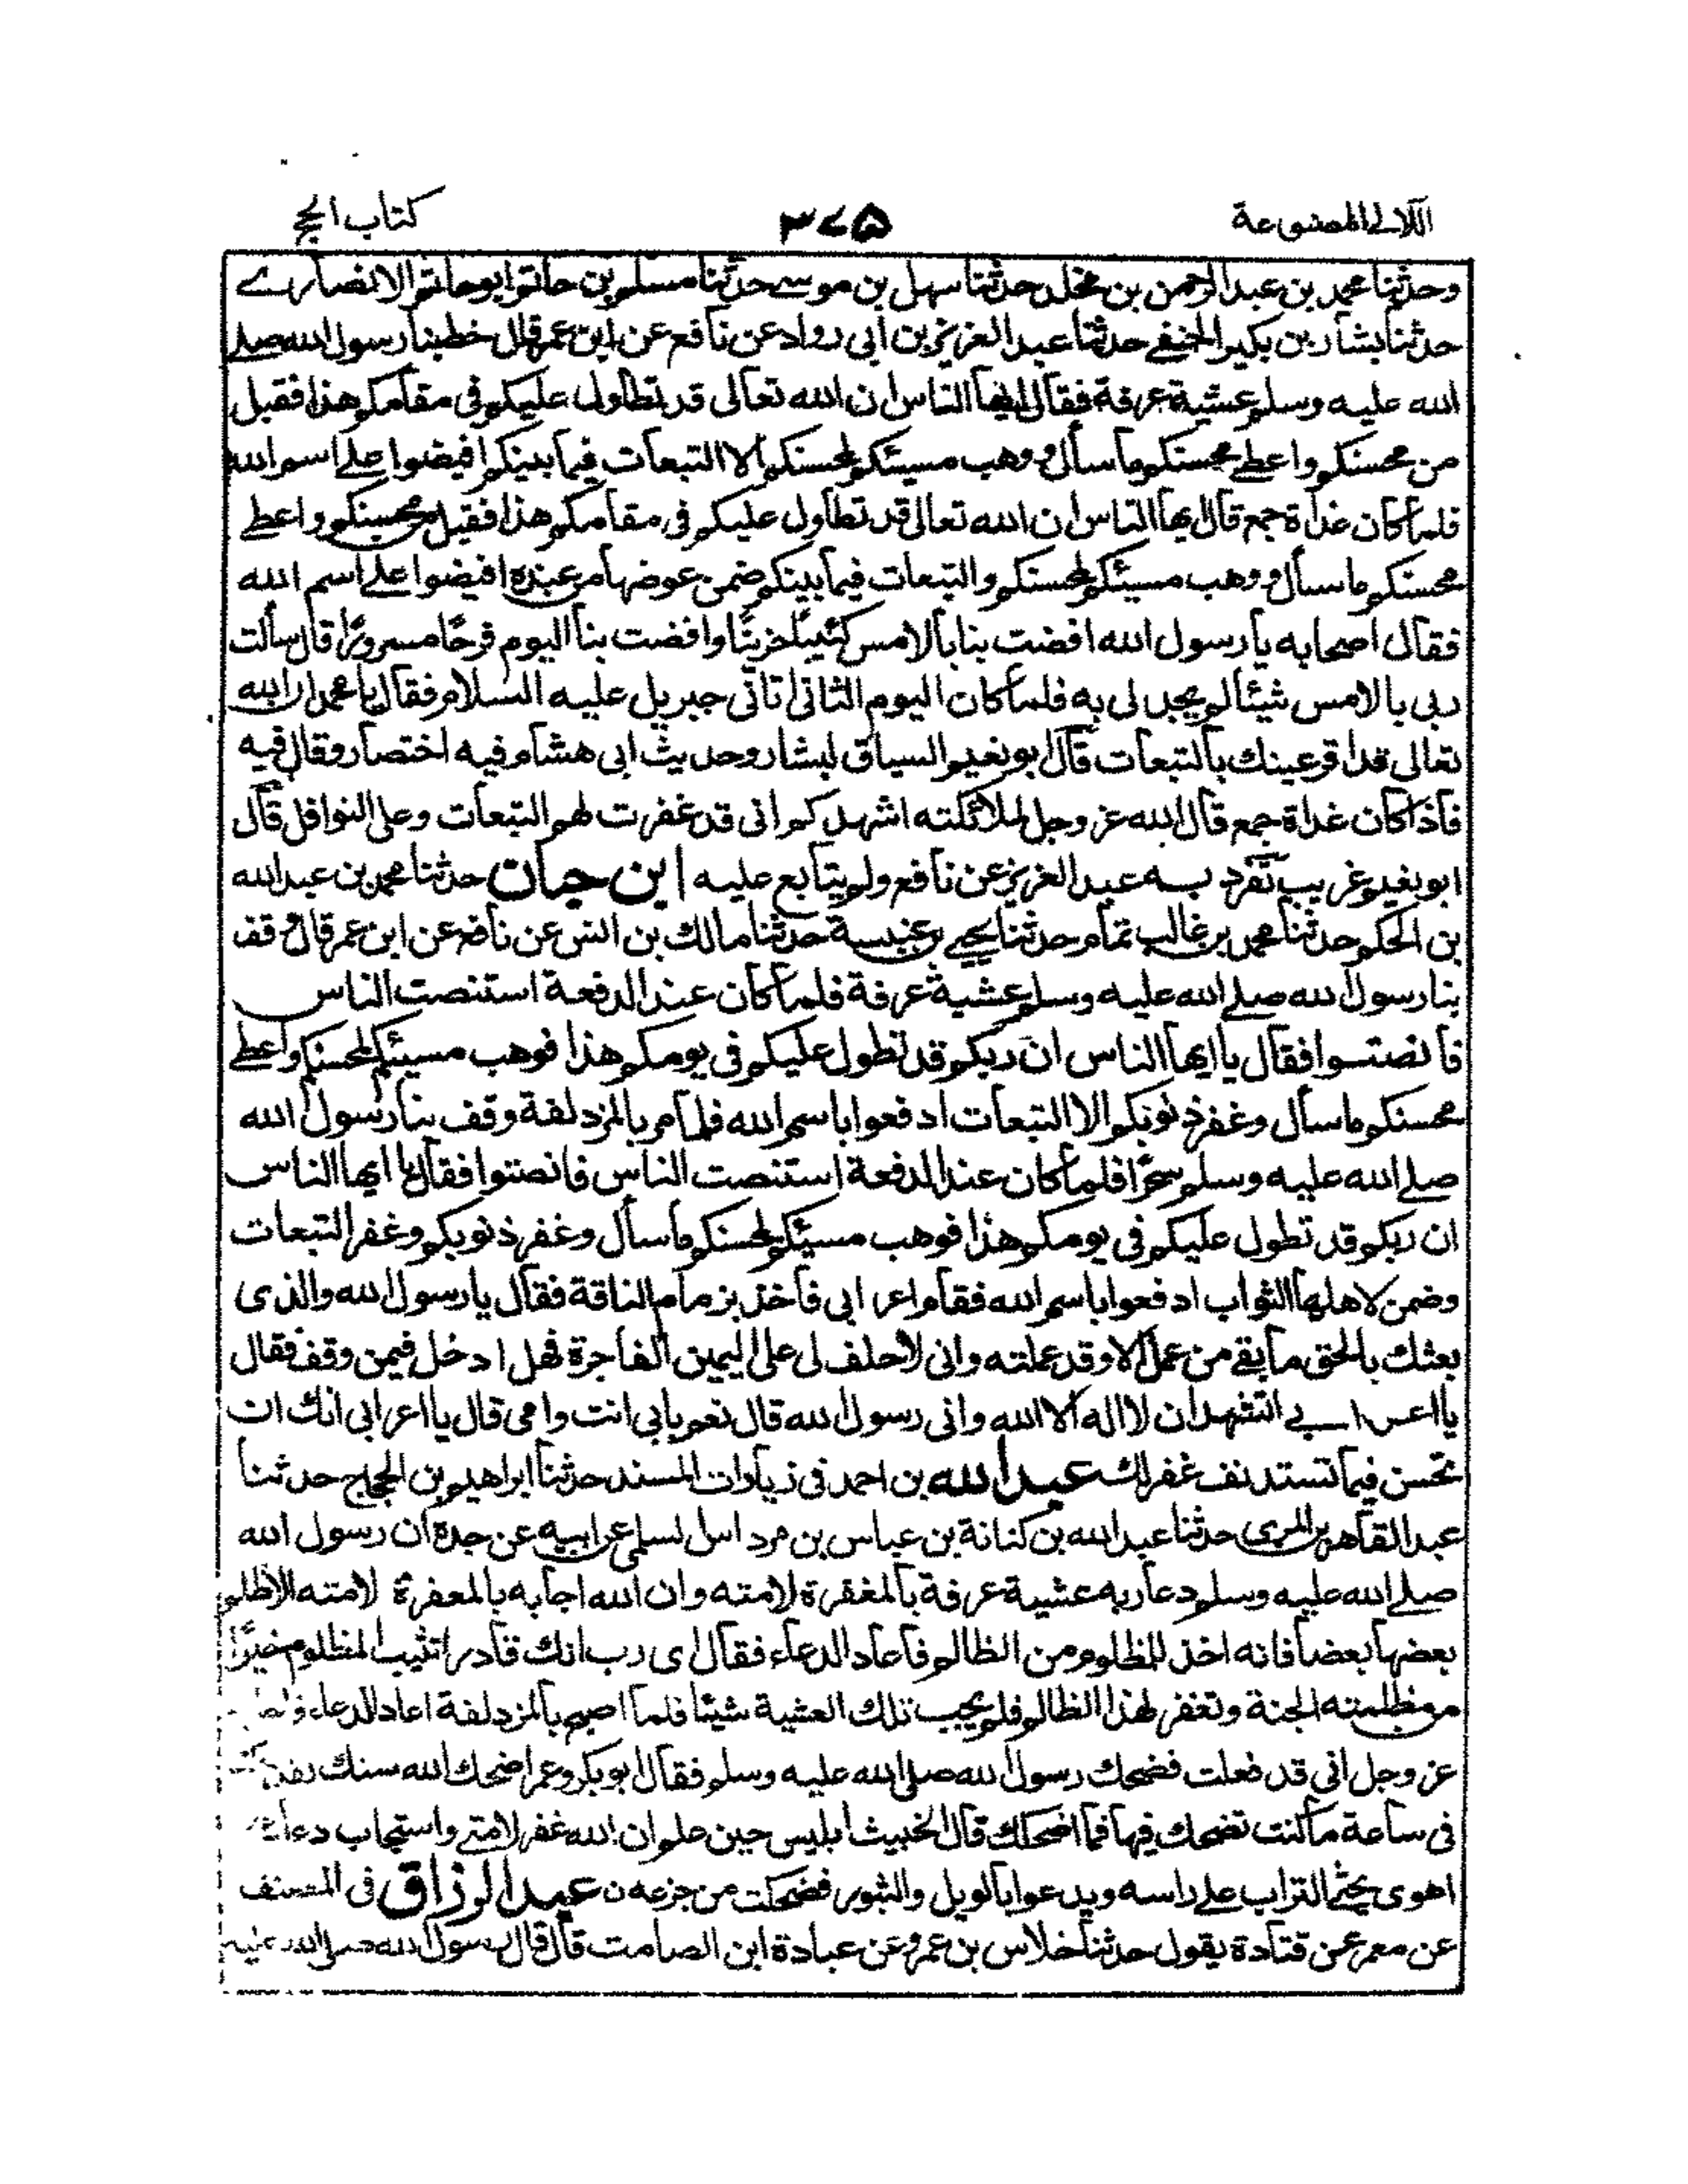 اللآلی المصنوعة
۳۷۵
كتاب الحج
وحدثنا محمد بن عبد الرحمن بن مخلد حدثنا سهل بن موسے حدثنا مسلم بن حاتم ابو حاتم الانصارے
حدثنا بشار بن بكير الحنفے حدثنا عبد العزيز بن ابى رواد عن نافع عن ابن عمر قال خطبنا رسول الله صلے
الله عليه وسلم عشية عرفة فقال ايها الناس ان الله تعالى قد تطاول عليكم فى مقامكم هذا فقبل
من محسنكم واعطے محسنكم ما سأل ووهب مسيئكم لمحسنكم الا التبعات فيما بينكم افيضوا علے اسم الله
فلما كان غداة جمع قال ايها الناس ان الله تعالى قد تطاول عليكم فى مقامكم هذا فقبل من محسنكم واعطے
محسنكم ما سأل ووهب مسيئكم لمحسنكم والتبعات فيما بينكم ضمن عوضها من عنده افيضوا علے اسم الله
فقال اصحابه يا رسول الله افضت بنا بالامس كئيبًا حزينًا وافضت بنا اليوم فرحًا مسرورًا قال سألت
ربى بالامس شيئا لم يجد لى به فلما كان اليوم الثانى اتانى جبريل عليه السلام فقال يا محمد ان الله
تعالى قد اقر عينك بالتبعات قال ابو نعيم السياق لبشار وحديث ابى هشام فيه اختصار وقال فيه
فاذا كان غداة جمع قال الله عز وجل لملائكته اشهدكم انى قد غفرت لهم التبعات وعلى النوافل قال
ابو نعيم غريب تفرد به عبد العزيز عن نافع ولم يتابع عليه ابن حبان حدثنا محمد بن عبد الله
بن الحكم حدثنا محمد بن غالب تمام حدثنا يحيے بن عنبسة حدثنا مالك بن انس عن نافع عن ابن عمر قال وقف
بنا رسول الله صلے الله عليه وسلم عشية عرفة فلما كان عند الدفعة استنصت الناس
فانصتوا فقال يا ايها الناس ان ربكم قد تطول عليكم فى يومكم هذا فوهب مسيئكم لمحسنكم واعطے
محسنكم ما سأل وغفر ذنوبكم الا التبعات ادفعوا باسم الله فلما مر بالمزدلفة وقف بنا رسول الله
صلے الله عليه وسلم سحرًا فلما كان عند الدفعة استنصت الناس فانصتوا فقال يا ايها الناس
ان ربكم قد تطول عليكم فى يومكم هذا فوهب مسيئكم لمحسنكم ما سأل وغفر ذنوبكم وغفر التبعات
وضمن لاهلها الثواب ادفعوا باسم الله فقام اعرابى فاخذ بزمام الناقة فقال يا رسول الله والذى
بعثك بالحق ما بقے من عمل الا وقد عملته وانى لاحلف لى على اليمين الفاجرة فهل ادخل فيمن وقف فقال
يا اعرابے اتشهد ان لا اله الا الله وانى رسول الله قال نعم بابى انت وامى قال يا اعرابى انك ان
تحسن فيما تستدنف غفر لك عبد الله بن احمد فى زيادات المسند حدثنا ابراهيم بن الحجاج حدثنا
عبد القاهر بن المرى حدثنا عبد الله بن كنانة بن عباس بن مرداس السلمى عن ابيه عن جده ان رسول الله
صلے الله عليه وسلم دعا ربه عشية عرفة بالمغفرة لامته وان الله اجابه بالمغفرة لامته الا ظلم
بعضها بعضا فانه اخذ للمظلوم من الظالم فاعاد الدعاء فقال اى رب انك قادر ان تثيب المظلوم خيرًا
من مظلمته الجنة وتغفر لهذا الظالم فلم يجب تلك العشية شيئا فلما اصبح بالمزدلفة اعاد الدعاء
عز وجل انى قد فعلت فضحك رسول الله صلے الله عليه وسلم فقال ابو بكر وعمر اضحك الله سنك
فى ساعة ما كنت تضحك فيها فما اضحكك قال الخبيث ابليس حين علم ان الله غفر لامتے واستجاب دعائى
اهوى يحثے التراب علے راسه ويدعو بالويل والثبور فضحكت من جزعه ن عبد الرزاق فى المصنف
عن معمر عمن قتادة يقول حدثنا خلاس بن عمرو عن عبادة ابن الصامت قال قال رسول الله صلے الله عليه